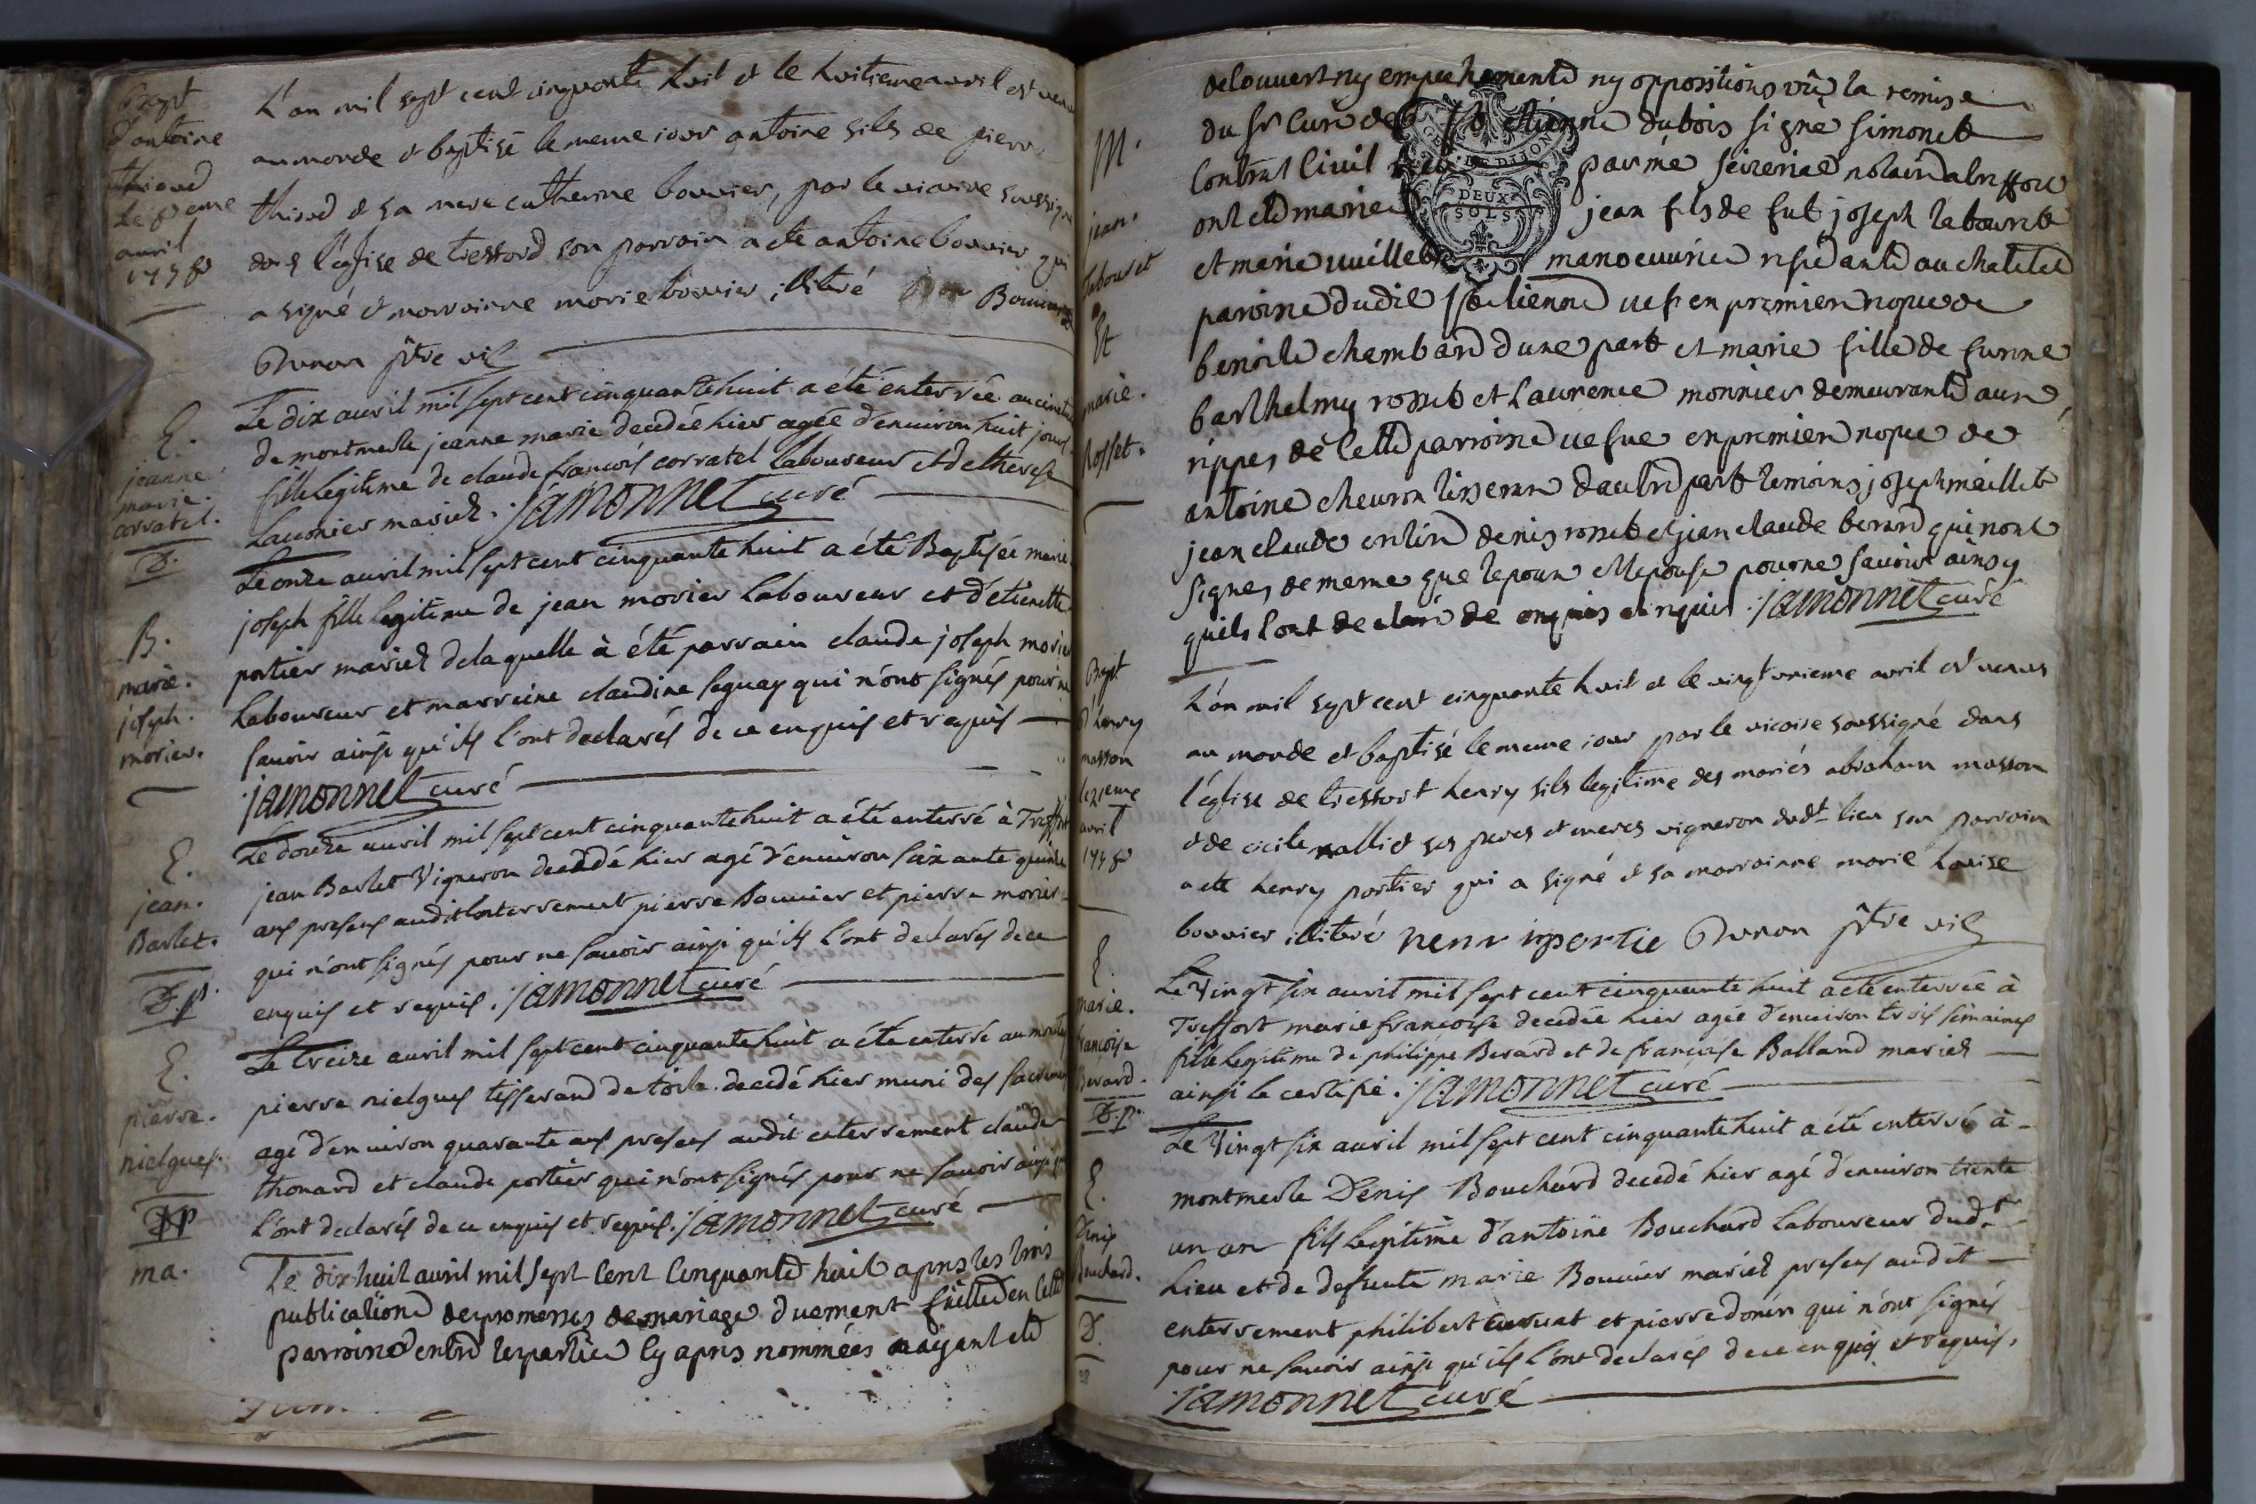 Bapt
d'antoine
thiood
le 8eme
avril
1758
L'an mil sept cent cinquante huit et le huitieme avril est venu
au monde et baptisé le meme jour antoine fils de pierre
thiood et sa mere catherine bouvier, par le vicaire soussigné
dans l'église de tressord son parrain a ete antoine bouvier qui
a signé et marrainne marie bouvier illitéré Bouvier
ptre vic
E.
jeanne
marie.
corratel.
D.
Le dix avril mil sept cent cinquante huit a été enterrée au cimet
de montmerle jeanne marie decedée hier agée d'environ huit jours
fille legitime de claude françois corratel laboureur et de therese
mariez. jamonnet curé
B.
marie.
joseph.
morier.
Le onze avril mil sept cent cinquante huit a été Baptisée marie
joseph fille legitime de jean morier laboureur et d'etienette
portier mariez de laquelle à été parrain claude joseph morier
laboureur et marreine claudine seguey qui n'ont signés pour ne
savoir ainsi qu'ils l'ont declarés de ce enquis et requis
jamonnet curé
E.
jean.
Barlet.
D.p.
Le douze avril mil sept cent cinquante huit a été enterré à Treffort
jean Barlet Vigneron decedé hier agé d'environ soixante quinze
ans presens audit enterrement pierre Bouvier et pierre morier
qui n'ont signés pour ne savoir ainsi qu'ils l'ont declarés de ce
enquis et requis. jamonnet curé
E.
pierre.
nielgues.
DP
Le treize avril mil sept cent cinquante huit a été enterré au
pierre nielgues tisserand de toile decedé hier muni des sacremens
agé d'environ quarante ans presens audit enterrement claude
thonard et claude portier qui n'ont signés pour ne savoir ainsi qu
l'ont declarés de ce enquis et requis. jamonnet curé
ma.
Le dix huit avril mil sept cent cinquante huit apres les trois
publications des promesses de mariage duement faittes en cette
parroisse entre les parties cy apres nommées nayant ete
M.
jean.
labouret
Et
marie.
Rosset.
decouvert ny empechements ny oppositions vû la remise
du sr Curé de St etienne dubois signé simonet
Contrat Civil par me notaire a treffort
GEN. DE DIJON
DEUX
SOLS
ont ete mariés jean fils de fut joseph labouret
et marie manoeuvrier residant au chatelet
parroisse dudit St etienne vef en premier nopce de
benoite chambard dune part et marie fille de
barthelmy rosset et Laurence monnier demeurante aux
rippes de cette parroisse vefve en premier nopce de
antoine chevron tisseran dautre part temoins joseph maillet
jean claude denis rosset et jean claude berard qui nont
signes de meme que lepoux et lepouse pour ne savoir ainsy
quils lont declaré de enquis et requis. jamonnet curé
Bapt
d'henry
masson
le 21eme
avril
1758
L'an mil sept cent cinquante huit et le vingt unieme avril est venus
au monde et baptisé le meme jour par le vicaire soussigné dans
l'église de tressort henry fils legitime des mariés abraham masson
et de cicile ses peres et meres vigneron dudt lieu son parrain
a ete henry portier qui a signé et sa marrainne marie louise
bouvier illitéré henri portie ptre vic
E.
marie.
francoise
Berard.
D.p.
Le Vingt six avril mil sept cent cinquante huit a été enterrée à
Treffort marie francoise decedée hier agée d'environ trois semaines
fille legitime de philippe Berard et de francoise Balland mariez
ainsi le certifie. jamonnet curé
E.
Denis
Bouchard.
D.
Le Vingt six avril mil sept cent cinquante huit a été enterré à
montmerle Denis Bouchard decedé hier agé d'environ trente
un an fils legitime d'antoine Bouchard laboureur dudt
Lieu et de defunte marie Bouvier mariez presens audit
enterrement philibert et pierre donin qui n'ont signés
pour ne savoir ainsi qu'ils l'ont declarés de ce enquis et requis.
jamonnet curé